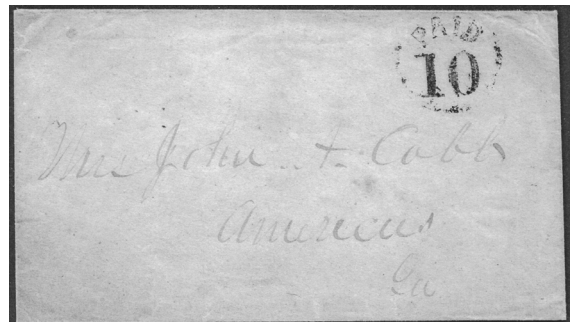 PAID
10
Mrs John A. Cobb
Americus
Ga